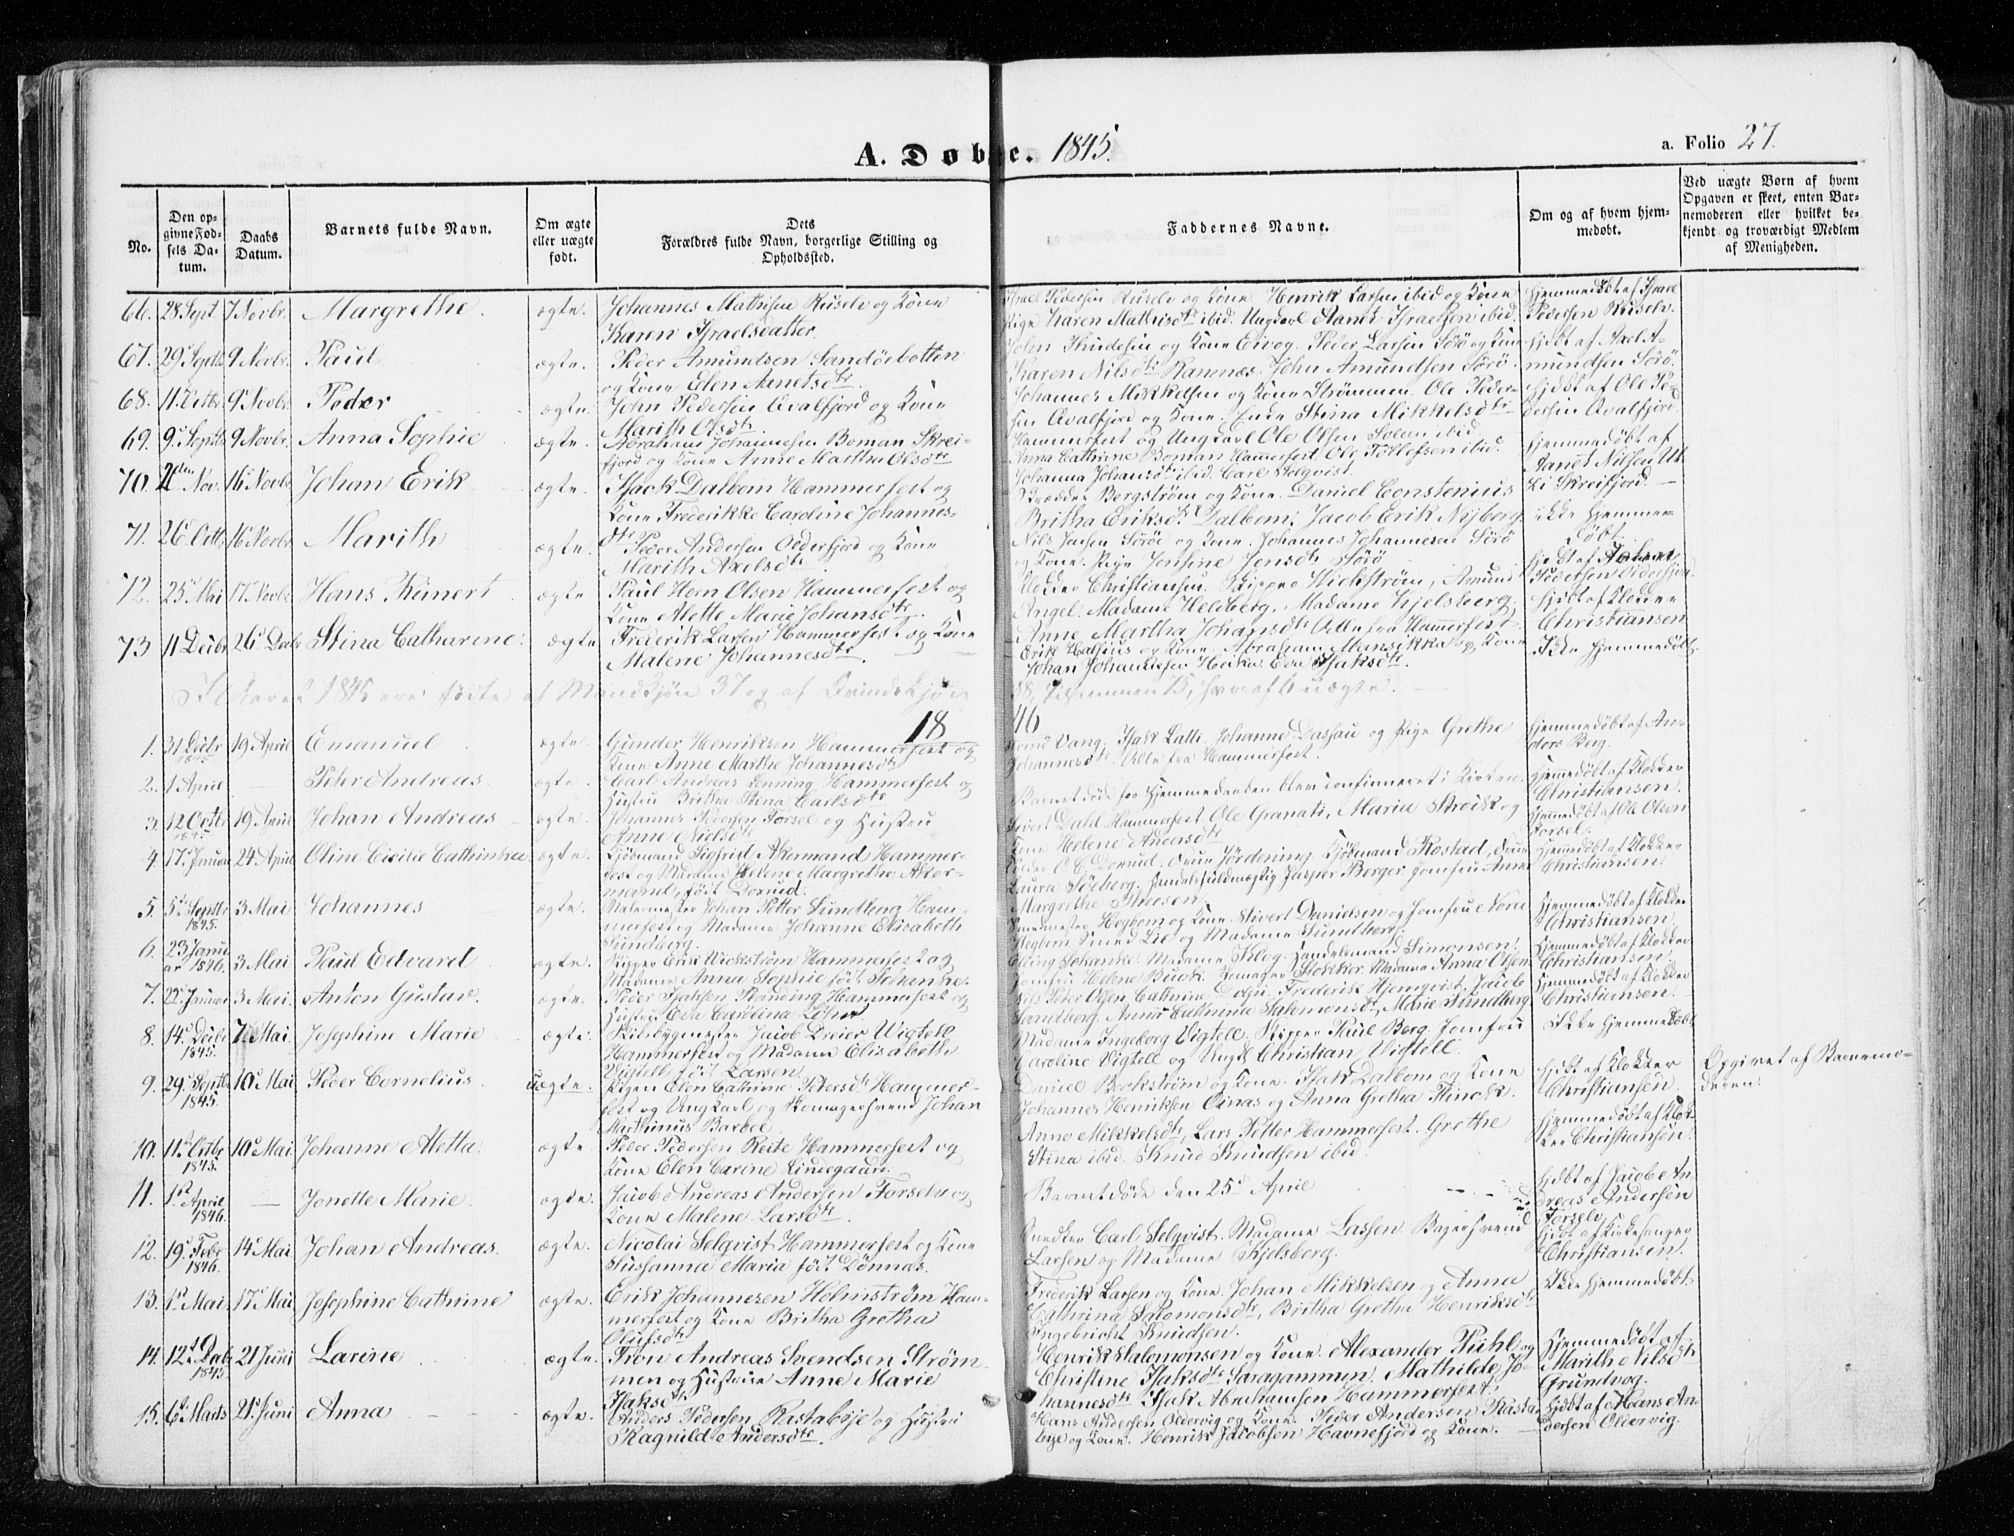 A. Døbte. 1845.
a. Folio 27.
No.
Den opgivne Fødsels Datum.
Daabs Datum.
Barnets fulde Navn.
Om ægte eller uægte født.
Dets Forældres fulde Navn, borgerlige Stilling og Opholdssted.
Faddernes Navne.
Om og af hvem hjemmedøbt.
Ved uægte Børn af hvem Opgaven er skeet, enten Barnemoderen eller hvilket bekjendt og troværdigt Medlem af Menigheden.
66. 28 Sept 7 Novbr. Margrethe. ægte. Johannes Mathisen Russelv og Kone
Karen Israelsdatter.
Israel Pedersen Russelv og Kone Henrik Larsen ibid og Kone
Pige Karen Mathisdtr ibid. Ungkarl Israelsen ibid.
Hjemmedøbt af Israel
Pedersen Russelv.
67. 29 Septbr 9 Novbr. Paul ægte. Peder Amundsen Sandöebotten
og Kone Elen Arnetsdtr
John og Kone Peder Larsen Sörö og Kone
Karen Nilsdtr Ramnæs. John Amundsen Sörö.
hjdbt af Axel A-
mundsen Sörö.
68. 11. Octbr. 9 Novbr. Peder ægte. John Pedersen Qvalfjord og Kone
Marith Olsdtr
Johannes Mikkelsen og Kone Strömmen. Ole Peder-
sen Qvalfjord og Kone. Enke Stina Mikkelsdtr
hjdbt af Ole Pe-
dersen Qvalfjord.
69. 9 Septbr 9 Novbr. Anna Sophie ægte. Abraham Johannesen Boman Skrei-
fjord og Kone Anne Martha Olsdtr
Hammerfest og Ungkarl Ole Olsen ibid
Anna Cathrine Boman Hammerfest, Ole Tollefsen ibid.
Johanna Johansdtr ibid. Carl Selqvist.
Hjemmedøbt af
Nilsen
Skreifjord.
70. Nov. 16 Novbr Johan Erik ægte. Isack Dalbom Hammerfest og
Kone Frederikke Caroline Johannes-
dtr
Skrædder Bergström og Kone. Daniel Constenius
Britha Eriksdtr Dalbom. Jacob Erik Nyberg.
ikke hjemme-
døbt.
71. 26 Octbr 16 Novbr. Marith ægte. Peder Andersen Oldersfjord og Kone
Marith Axelsdtr
Nils Jensen Söröe og Kone. Johannes Johannesen Sörö
og Kone. Pige Jensine Jensdtr Sörö
hjdbt af
Pedersen Oldersfjord.
72. 25 Mai 17 Novbr Hans Reinert ægte Paul Horn Olsen Hammerfest og
Kone Alette Marie Johansdtr
Klokker Christiansen. Skipper Wickström, Amund
Angel. Madame Heldberg. Madame Kjelsberg,
Anne Martha Johansdtr Alle fra Hammerfest.
hjdbt af Klokker
Christiansen
73 11 Decbr 26 Decbr Stina Catharine. ægte Frederik Larsen Hammerfest og Kone
Malene Johannesdtr.
Erik Halsius og Kone. Abraham Mansikka og Kone
Johan Johannesen Heika Eva Isaksdtr.
Ikke hjemmedøbt.
I Aaret 1845 ere födte af Mandkjön 37 og af Qvindekjön
38, tilsammen 75, hvoraf 6 uægte.
1846
1. 31 Decbr 1845 19 April Emanuel ægte. Gunder Henriksen Hammerfest og
Kone Anne Marthe Johannesdtr
Vang, Isak Latti. Johanne Dassau og Pige Grethe
Johannesdtr Alle fra Hammerfest.
Hjemmedøbt af An-
ders Berg.
2. 1 April — Peter Andreas. ægte. Carl Andreas Hammerfest og
Hustru Britha Stina Carlsdtr
Barnet døde før Hjemmedaaben blev confirmeret i Kirken.
Hjemmedøbt af Klokker
Christiansen.
3. 12 Octbr 1845 19 April Johan Andreas ægte. Johannes Pedersen Forsøl og Hustru
Anne Nielsdtr
Sivert Dahl Hammerfest. Ole Granati, Maria Stroik og
Kone Helene Andersdtr
Hjemmedøbt af Ole Olsen
Forsøl.
4 17 Januar 24 April Oline Cicilie Cathinka ægte. Kjöbmand Sigfrid Akermand Hammer-
fest og Madame Helene Margrethe Aker-
mand, född Dorrud.
O. C. Dorrud. Jordening. Kjöbmand Rostad,
Laura Söeberg. Handelsfuldmægtig Jesper Berger. Jomfru Anne
Margrethe
Hjemmedøbt af Klokker
Christiansen.
5. 5 Septbr 1845. 3 Mai Johannes ægte. Malermester Johan Petter Sundberg Ham-
merfest og Madame Johanne Elisabeth
Sundberg.
Smedmester Hogbom og Kone. Sivert Danielsen og Jomfru Nora
Hogbom Smed Lie og Madame Sundberg.
Hjemmedøbt af Klokker
Christiansen.
6. 23 Janu-
ar 1846. 3 Mai Paul Edvard ægte. Skipper Erik Wickström Hammerfest og
Madame Anna Sophie född Schanke.
Elling Schanke. Madame Klog. Handelsmand Simonsen.
Jomfru Helene Buck. Skomager Stokker. Madame Anna Olsen
Hjemmedøbt af Klokker
Christiansen.
7. 22 Januar 3 Mai. Anton Gustav. ægte Peder Isaksen Standing Hammerfest og
Hustru Eva Carolina Löhn
Nils Peter Olsen Cathrine Frederik Hjemqvist, Jacob
Sandberg. Anna Cathrina Salomonsdtr, Marie Sundberg
Hjemmedøbt af Klokker
Christiansen.
8. 14 Decbr 1845. 7 Mai. Josephine Marie ægte. Skibsbygmester Jacob Dreier Wigtell
Hammerfest og Madame Elisabeth
Vigtell född Larsen
Madame Ingeborg Vigtell. Skipper Paul Berg. Jomfru
Caroline Vigtell og Ungk. Christian Vigtell.
Ikke hjemmedøbt.
9. 29 Septbr 1845. 10 Mai Peder Cornelius. uægte. Pigen Elen Cathrine Petersdtr Hammer-
fest og Ungkarl og Skomagersvend Johan
Marthinus Barboe
Daniel Beckström og Kone. Isak Dalbom og Kone
Johannes Henriksen Oinas og Anna Gretha
hjdbt af Klokker
Christiansen.
Opgivet af Barnemo-
deren.
10. 11 Octbr 1845. 10 Mai Johanne Aletta. ægte. Peder Pedersen Reite Hammerfest og
Kone Elen Carine Lindegaard.
Anne Mikkelsdtr, Lars Petter Hammerfest. Grethe
Stina ibid. Knud Knudsen ibid.
Hjemmedøbt af Klok-
ker Christiansen.
11. 1 April 1846. — Jonette Marie. ægte. Jacob Andreas Andersen Forsøl og
Kone Malene Larsdtr.
Barnet døde den 25 April
hjdbt af Jacob An-
dreas Andersen
Forsøl.
12. 19 Febr 1846. 14 Mai. Johan Andreas. ægte. Nicolai Selqvist Hammerfest og Kone
Sussanna Maria född Lönnas.
Snedker Carl Selqvist. Madame Lassen Bagersvend
Larsen og Madame Kjelsberg.
hjdbt af Kirkesanger
Christiansen.
13. 1 Mai. 17 Mai Josephine Cathrine ægte. Erik Johannesen Holmström Ham-
merfest og Kone Britha Gretha
Olufsdtr
Frederik Larsen og Kone. Johan Mikkelsen og Anna
Cathrina Salomonsdtr, Britha Gretha Henriksdtr
Ingebricht Knudsen.
Ikke hjemmedøbt.
14. 12 1845 21 Juni Larine ægte. Tron Andreas Svendsen Ström-
men og Hustrue Anne Marie
Isaksdtr
Henrik Salomonsen og Kone. Alexander Puhl og
Christine Isaksdtr Saragammen. Mathilde Jo-
hannesdtr Isak Abrahamsen Hammerfest,
Hjemmedøbt af
Marith Nilsdtr
Grundvog.
15. 6 Marts 21 Juni Anna ægte. Anders Pedersen Rastabye og Hustru
Ragnild Andersdtr.
Hans Andersen Oldervig og Kone. Peder Andersen Rasta-
bye og Kone. Henrik Jacobsen Havnefjord og Kone.
hjdbt af Hans An-
dersen Oldervig.